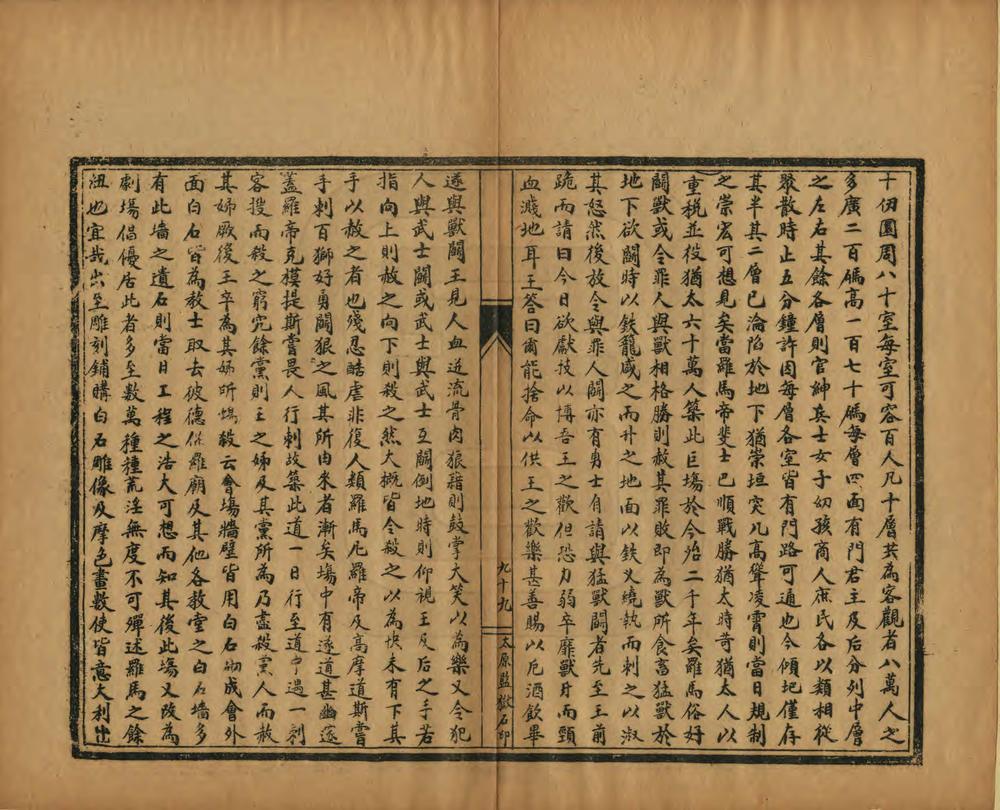 十伊園周八十室每室可容百人凡十層共為容觀者八萬人之
多廣二百碼高一百七十碼每層四面有門君主及后分列中層
之左右其餘各層則官紳兵士女子幼孩商人庶民各以類相從
聚散時止五分鐘許因每層各室皆有門路可通也今傾圯僅存
其半其二層已淪陷於地下猶崇垣突兀高聳凌霄則當日規制
之崇宏可想見矣當羅馬帝斐士巴順戰勝猶太時苛猶太人以
重稅並役猶太六十萬人築此巨塲於今殆二千年矣羅馬俗好
鬪獸或令罪人與獸相格勝則赦其罪敗即為獸所食畜猛獸於
地下欲鬪時以鉄籠咸之而升之地面以鉄火繞熱而刺之以淑
其怒然後放令與罪人鬪亦有勇士自請與猛獸鬪者先至王前
跪而請曰今日欲獻技以博吾王之歡但恐力弱卒靡獸牙而頸
血濺地耳王答曰爾能捨命以供王之歡樂甚善賜以卮酒飲畢
九十九
太原監獄石印
遂與獸鬪王見人血迸流骨肉狼藉則鼓掌大笑以為樂又令犯
人與武士鬪或武士與武士互鬪倒地時則仰視王及后之手若
指向上則赦之向下則殺之然大概皆令殺之以為快未有下其
手以赦之者也殘忍酷虐非復人類羅馬尼羅帝及高摩道斯嘗
手刺百獅好勇鬪狠之風其所由來者漸矣塲中有遂道甚幽遂
蓋羅帝克模提斯嘗畏人行刺故築此道一日行至道中遇一刺
客搜而殺之窮究餘黨則王之姊及其黨所為乃盡殺黨人而赦
其姊厥後王卒為其姊所塲殺云會塲牆壁皆用白石砌成會外
面白石皆為教士取去彼德保羅廟及其他各教堂之白石墻多
有此墻之遺石則當日工程之浩大可想而知其後此塲又改為
劇塲倡優居此者多至數萬種種荒淫無度不可殫述羅馬之餘
沮也宜哉出至雕刻鋪購白石雕像及摩色畫數使皆意大利出